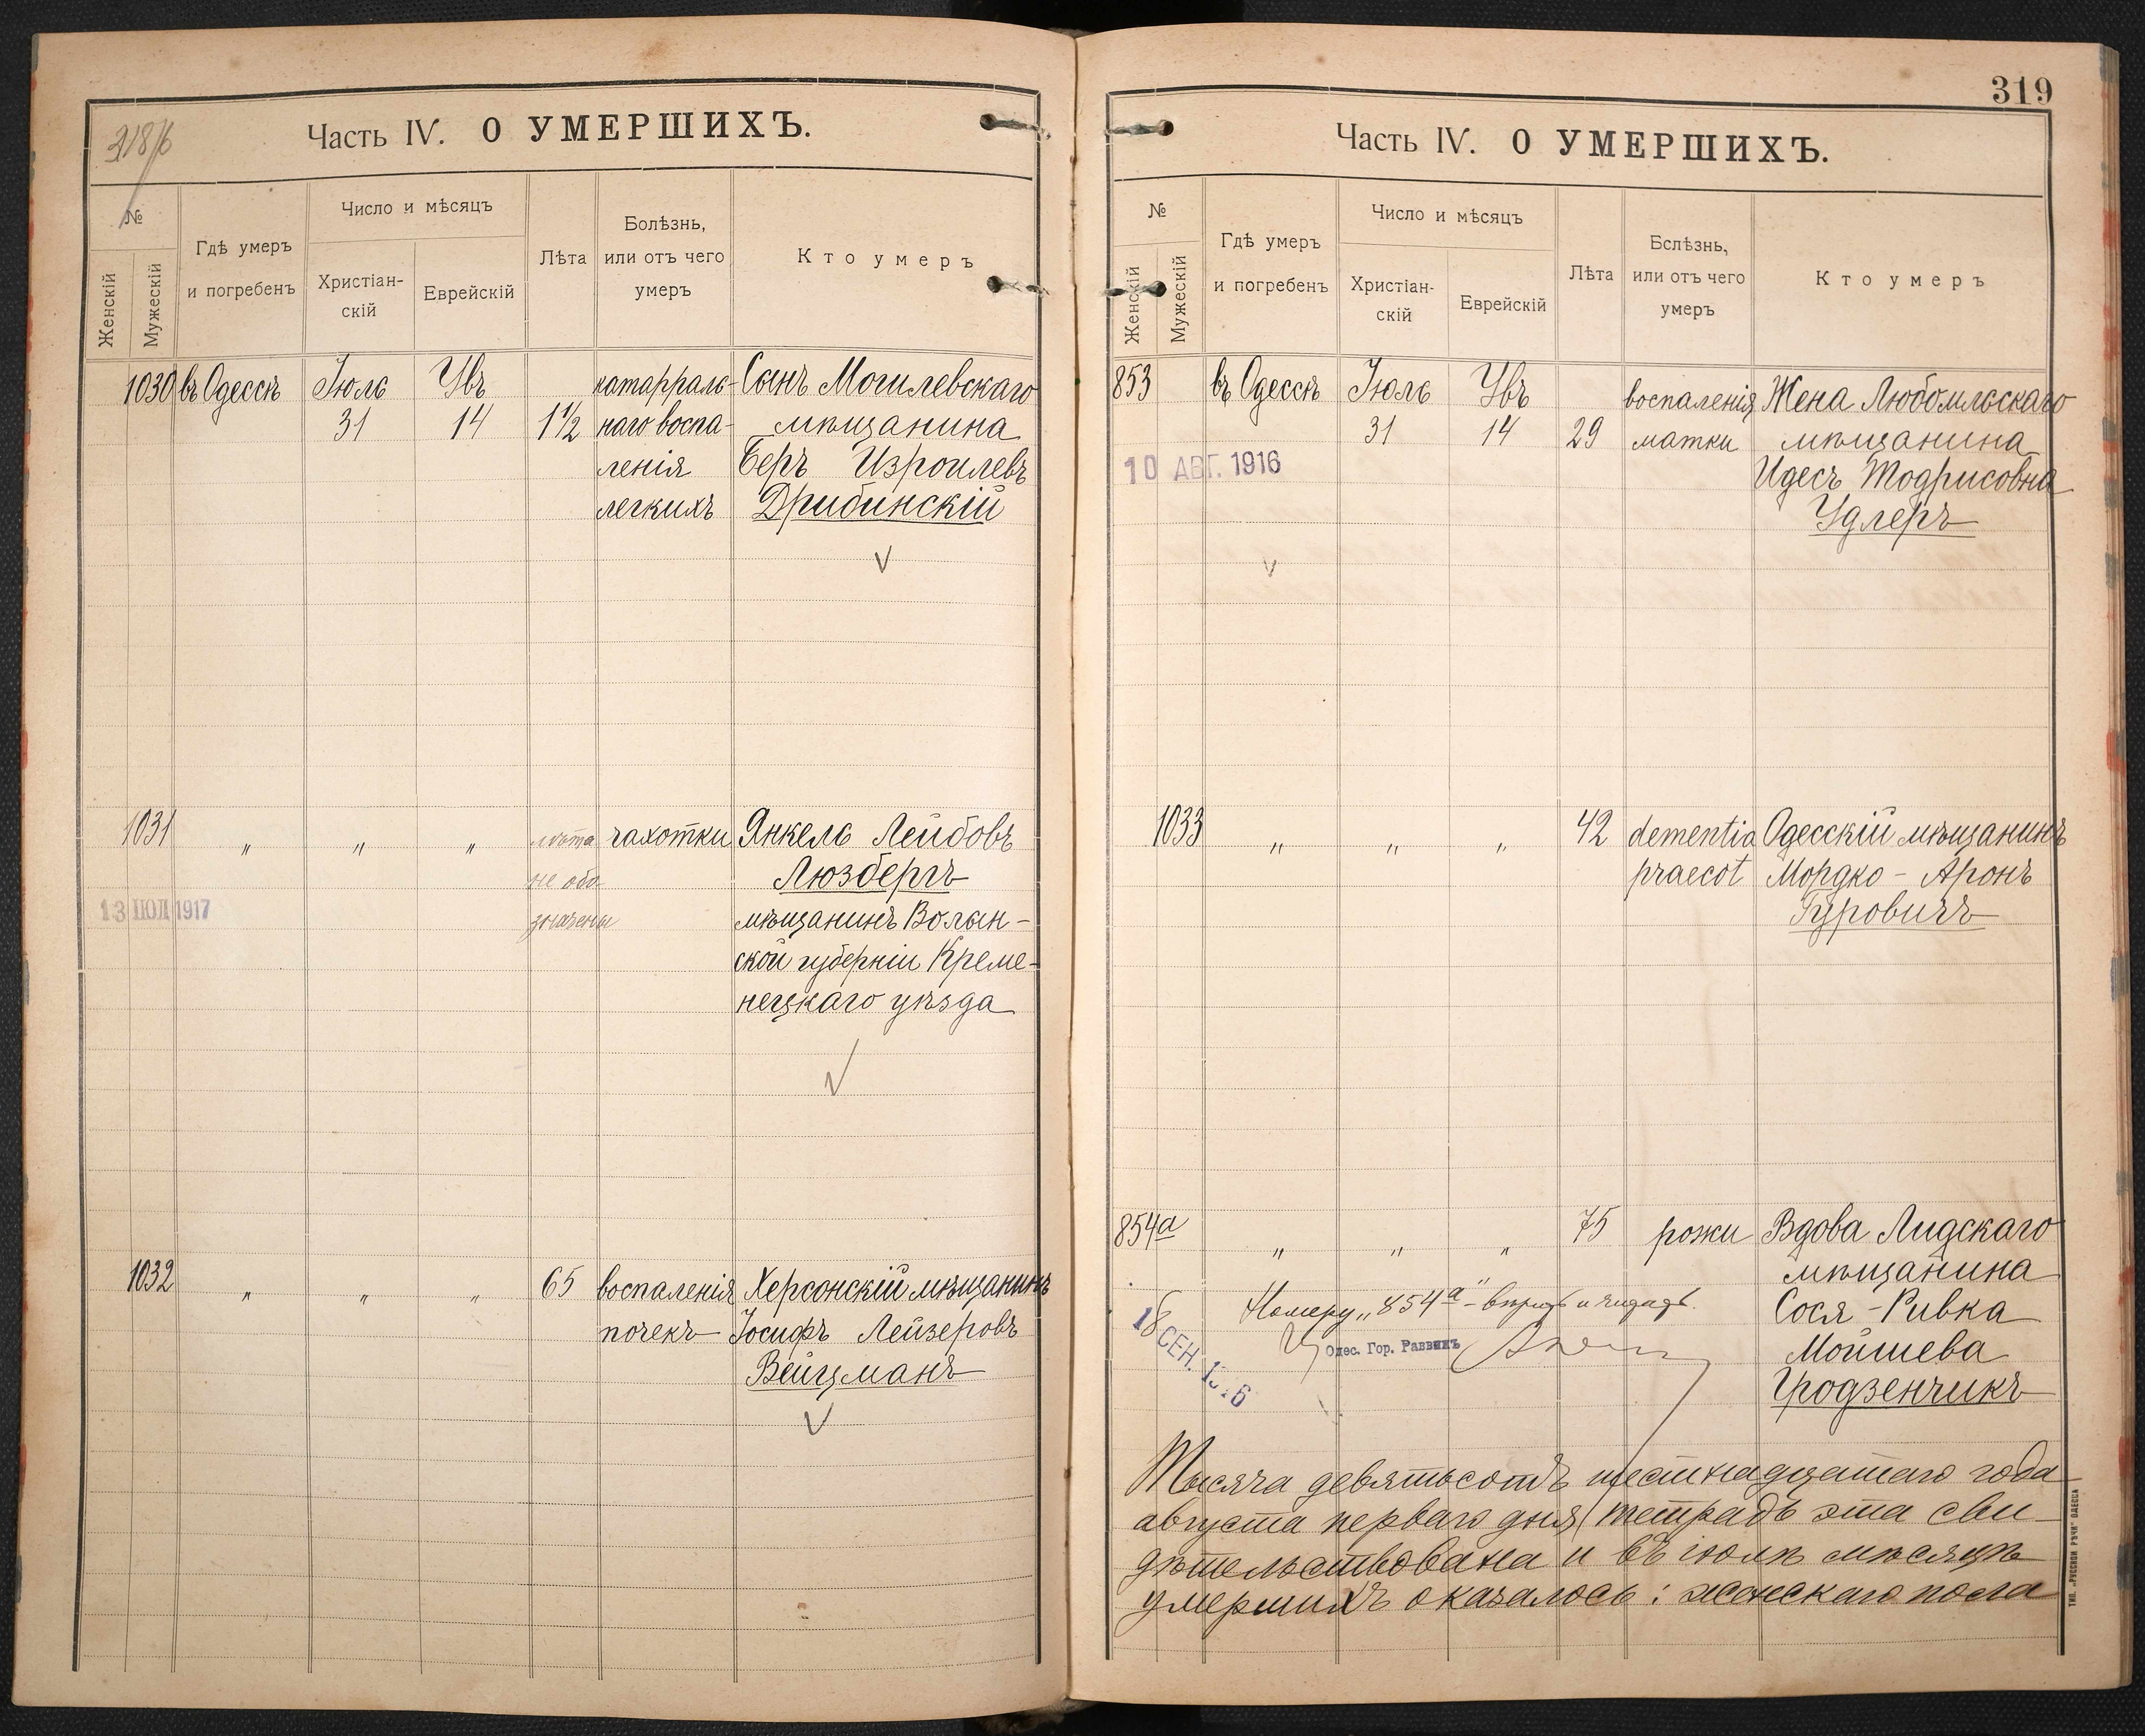 318/б
Часть IV. О УМЕРШИХЪ.
№
Женскій
Мужескій
Гдѣ умеръ
и погребенъ
Число и мѣсяцъ
Христіан-
скій
Еврейскій
Лѣта
Болѣзнь,
или отъ чего
умеръ
Кто умеръ
1030 въ Одессѣ Іюль Увъ катарраль- Сынъ Могилевскаго
31 14 1½ наго воспа- мѣщанина
ленія Беръ Изроилевъ
легкихъ Дрибинскій
1031 „ „ „ лѣта чахотки Янкель Лейбовъ
не обо Люзбергъ
13 ІЮЛ 1917 значены мѣщанинъ Волын-
ской губерніи Креме-
нецкаго уѣзда
1032 „ „ „ 65 воспаленія Херсонскій мѣщанинъ
почекъ Іосифъ Лейзеровъ
Вейцманъ
319
Часть IV. О УМЕРШИХЪ.
№
Женскій
Мужескій
Гдѣ умеръ
и погребенъ
Число и мѣсяцъ
Христіан-
скій
Еврейскій
Лѣта
Бслѣзнь,
или отъ чего
умеръ
Кто умеръ
853 въ Одессѣ Іюль Увъ воспаленія Жена Любомльскаго
31 14 29 матки мѣщанина
10 АВГ. 1916 Идесъ Тодрисовна
Удлеръ
1033 „ „ „ 42 dementia Одесскій мѣщанинъ
praecot Мордко - Аронъ
Гуровичъ
854а „ „ „ 75 рожи Вдова Лидскаго
мѣщанина
Номеру „854а"
Сося - Ривка
18 СЕН. 1916 Одес. Гор. Раввинъ
Мойшева
Гродзенчикъ
Тысяча девятьсотъ шестнадцатаго года
августа перваго дня тетрадь эта сви-
дѣтельствована и въ іюлѣ мѣсяцѣ
умершихъ оказалось: женскаго пола
ТИП. „РУССКОЙ РѢЧИ" ОДЕССА